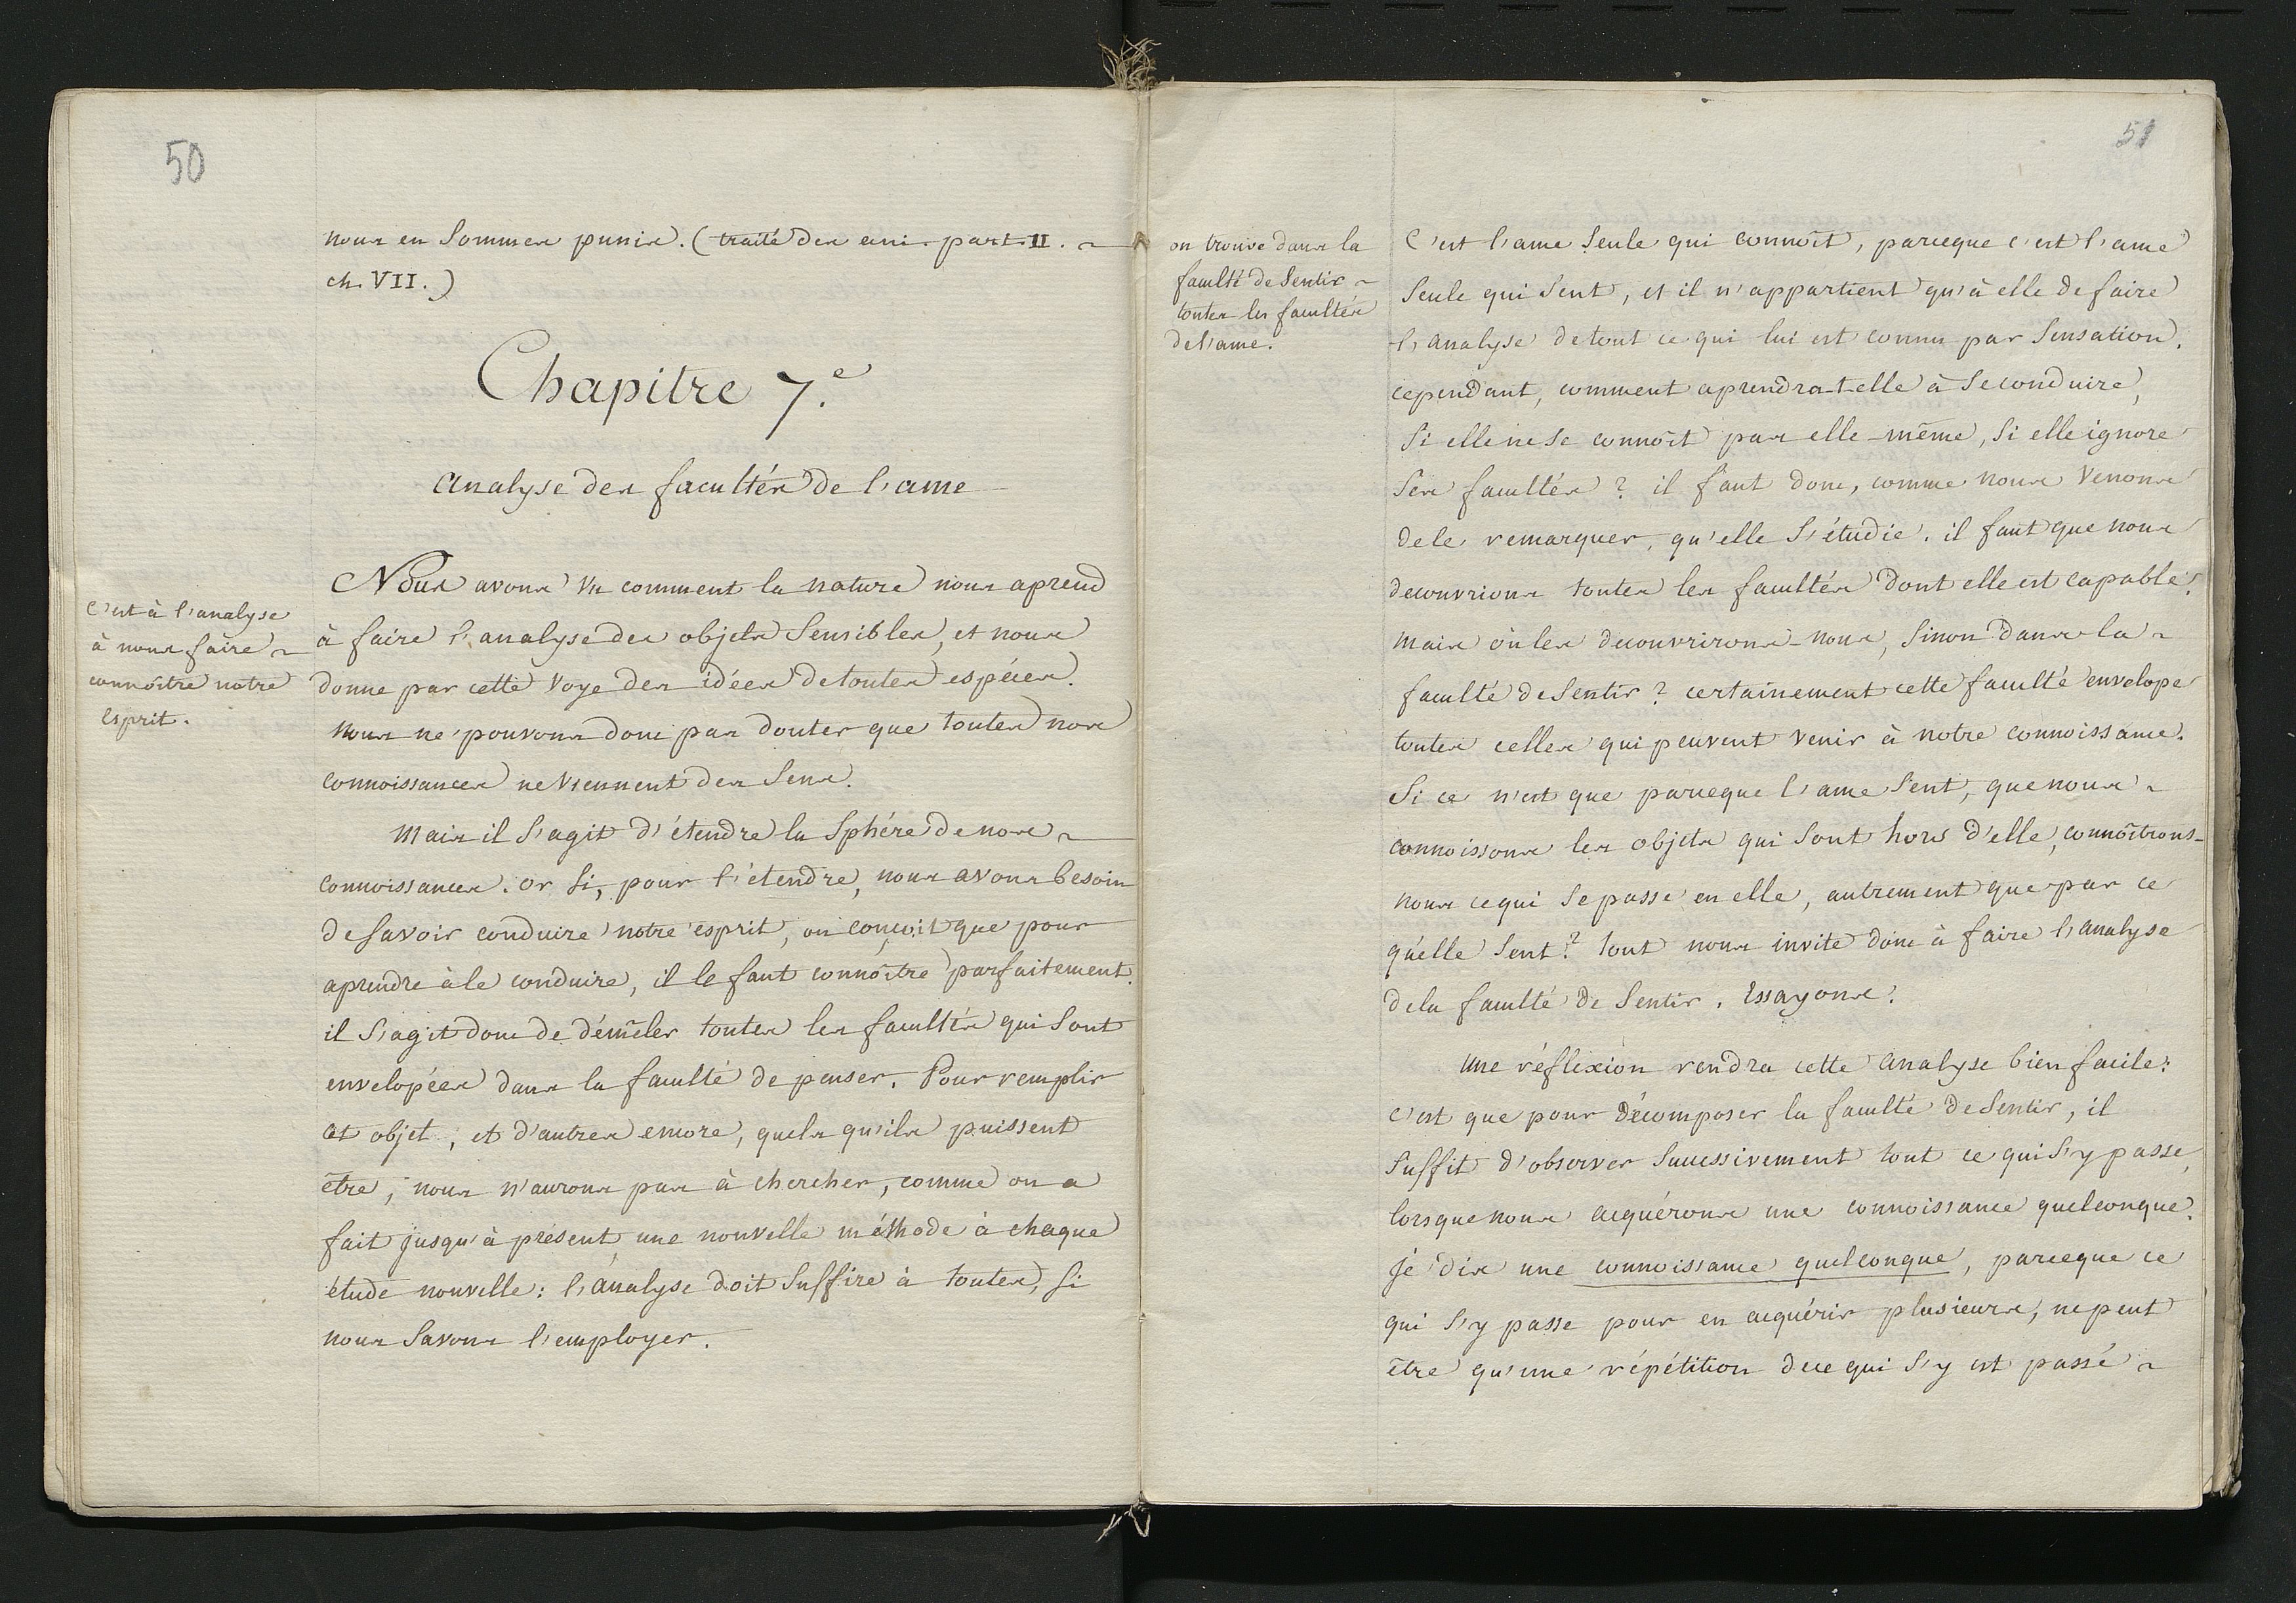 50
nous en sommes punis. (traité des ani. part. II.
ch. VII.)
Chapitre 7.e
analyse des facultés de l'ame
C'est à l'analyse
à nous faire
connoître notre
esprit.
Nous avons vu comment la nature nous aprend
à faire l'analyse des objets sensibles, et nous
donne par cette voye des idées de toutes espéces.
nous ne pouvons donc pas douter que toutes nos
connoissances ne viennent des sens.
mais il s'agit d'étendre la sphére de nos
connoissances. or si, pour l'étendre, nous avons besoin
de savoir conduire notre esprit, on conçoit que pour
aprendre à le conduire, il le faut connoître parfaitement.
il s'agit donc de déméler toutes les facultés qui sont
envelopées dans la faculté de penser. Pour remplir
cet objet, et d'autres encore, quels qu'ils puissent
être, nous n'aurons pas à chercher, comme on a
fait jusqu'à présent, une nouvelle méthode à chaque
étude nouvelle: l'analyse doit suffire à toutes, si
nous savons l'employer.
51
on trouve dans la
faculté de sentir
toutes les facultés
de l'ame.
C'est l'ame seule qui connoît, parceque c'est l'ame
seule qui sent, et il n'appartient qu'à elle de faire
l'analyse de tout ce qui lui est connu par sensation.
cependant, comment aprendra-t-elle à se conduire,
si elle ne se connoît pas elle-même, si elle ignore
ses facultés? il faut donc, comme nous venons
de le remarquer, qu'elle s'étudie. il faut que nous
decouvrions toutes les facultés dont elle est capable.
mais où les decouvrirons-nous, sinon dans la
faculté de sentir? certainement cette faculté envelope
toutes celles qui peuvent venir à notre connoissance.
Si ce n'est que parceque l'ame sent, que nous
connoissons les objets qui sont hors d'elle, connoîtrons-
nous ce qui se passe en elle, autrement que par ce
qu'elle sent? tout nous invite donc à faire l'analyse
de la faculté de sentir. Essayons.
une réflexion rendra cette analyse bien facile:
c'est que pour décomposer la faculté de sentir, il
suffit d'observer successivement tout ce qui s'y passe,
lorsque nous acquérons une connoissance quelconque.
je dis une connoissance quelconque, parceque ce
qui s'y passe pour en acquérir plusieurs, ne peut
être qu'une répétition de ce qui s'y est passé